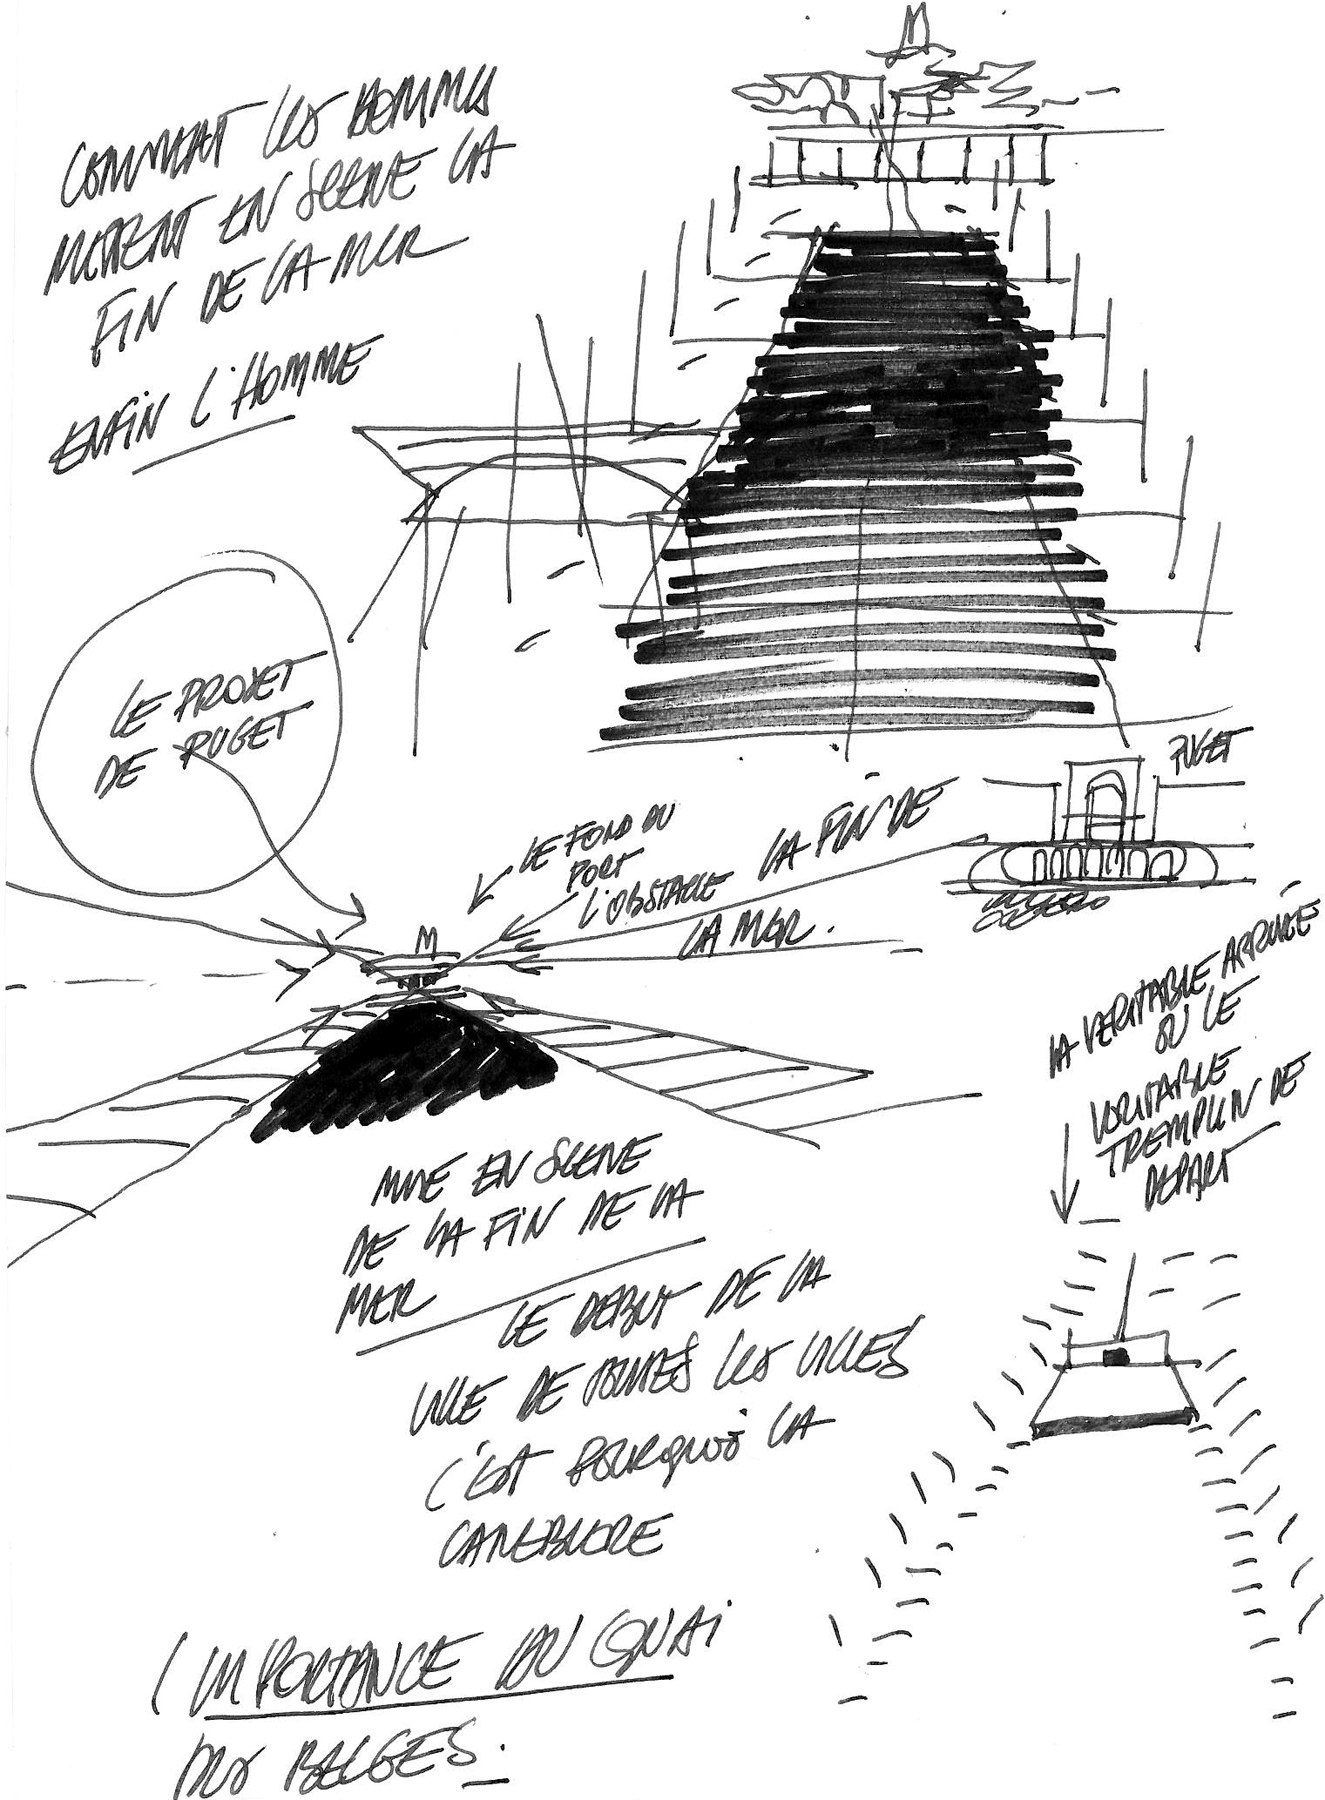 COMMENT LES HOMMES
METTENT EN SCENE LA
FIN DE LA MER
ENFIN L'HOMME
LE PROJET
DE PUGET
PUGET
LE FOND DU
PORT
L'OBSTACLE
LA FIN DE
LA MER.
M
LA VERITABLE ARRIVÉE
OU LE
VERITABLE
TREMPLIN DE
DEPART
MISE EN SCENE
DE LA FIN DE LA
MER
LE DEBUT DE LA
VILLE DE TOUTES LES VILLES
C'EST POURQUOI LA
CANEBIERE
L'IMPORTANCE DU QUAI
DES BELGES.